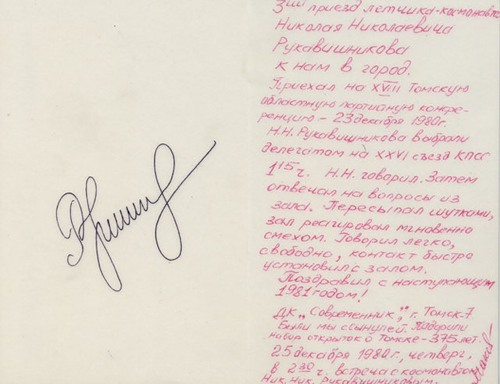 3ий приезд летчика-космонавта
Николая Николаевича
Рукавишникова
к нам в город.
Приехал на XVIII Томскую
областную партийную конфе-
ренцию – 23 декабря 1980г.
Н.Н. Рукавишникова выбрали
делегатом на XXVI съезд КПСС
1 15 ч. Н.Н. говорил. Затем
отвечал на вопросы из
зала. Пересыпал шутками,
зал реагировал мгновенно
смехом. Говорил легко,
свободно, контакт быстро
установил с залом.
Поздравил с наступающим
1981 годом!
ДК „Современник", г. Томск-7
Были мы с Подарили
набор открыток о Томске – 375 лет.
25 декабря 1980г, четверг,
в 2 ч. встреча с космонавтом
Ник. Ник. Рукавишниковым.